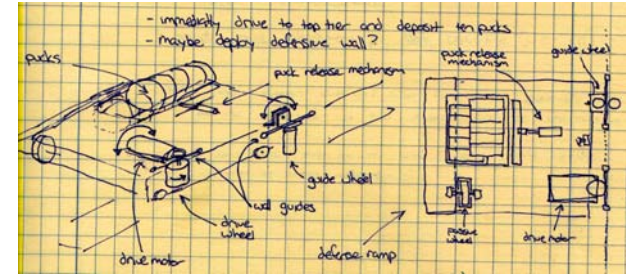 - immediatly drive to top tier and deposit ten pucks
- maybe deploy defensive wall?
pucks
puck release mechanism
guide wheel
wall guides
drive wheel
drive motor
puck release
mechanism
guide wheel
passive
wheel
drive motor
defense ramp